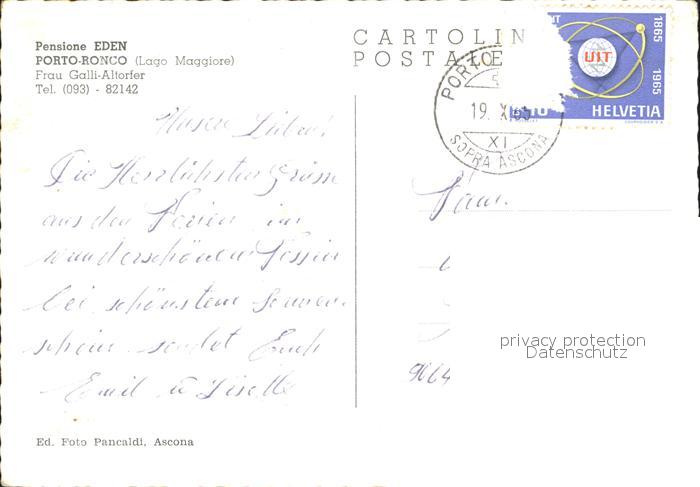 Pensione EDEN
PORTO-RONCO (Lago Maggiore)
Frau Galli-Altorfer
Tel. (093) - 82142
CARTOLIN
POSTALE
1865
1965
UIT
HELVETIA
PORTO
19. X. 65
XI
SOPRA ASCONA
Die Herzlichsten Grüsse
aus den Ferien im
wunderschönen Tessin
bei schönstem Sonnen-
schein sendet Euch
Emil u Liselt
Fam.
privacy protection
Datenschutz
Ed. Foto Pancaldi, Ascona